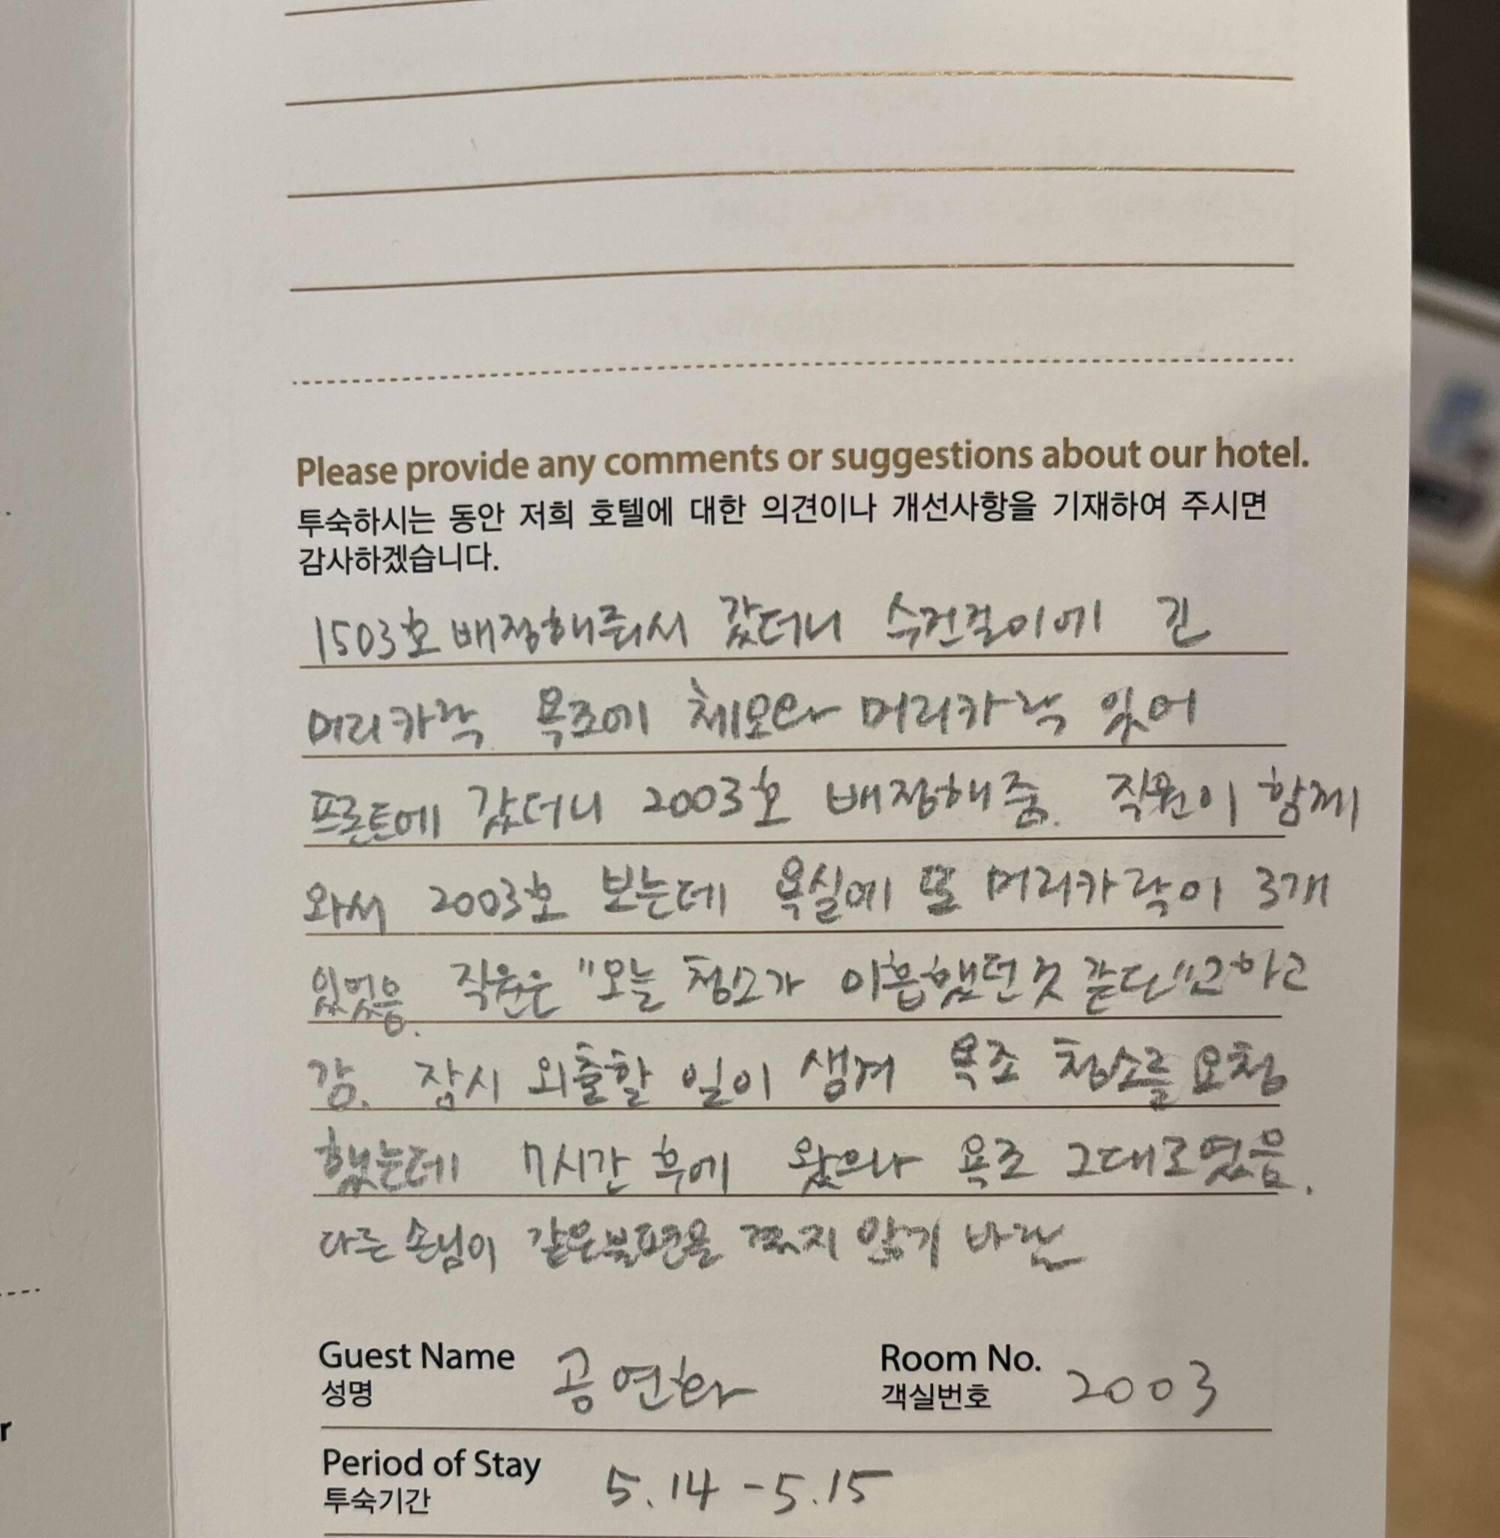 Please provide any comments or suggestions about our hotel.
투숙하시는 동안 저희 호텔에 대한 의견이나 개선사항을 기재하여 주시면
감사하겠습니다.
1503호 배정해줘서 갔더니 수건걸이에 긴
머리카락 욕조에 체모와 머리카락 있어
프론트에 갔더니 2003호 배정해줌. 직원이 함께
와서 2003호 보는데 욕실에 또 머리카락이 3개
있었음. 직원은 "오늘 청소가 미흡했던것 같단"고하고
감. 잠시 외출할 일이 생겨 욕조 청소를 요청
했는데 7시간 후에 왔으나 욕조 그대로였음.
다른 손님이 같은불편을 겪지 않기 바란
Guest Name 공연화 Room No. 2003
성명 객실번호
Period of Stay 5.14 - 5.15
투숙기간
r